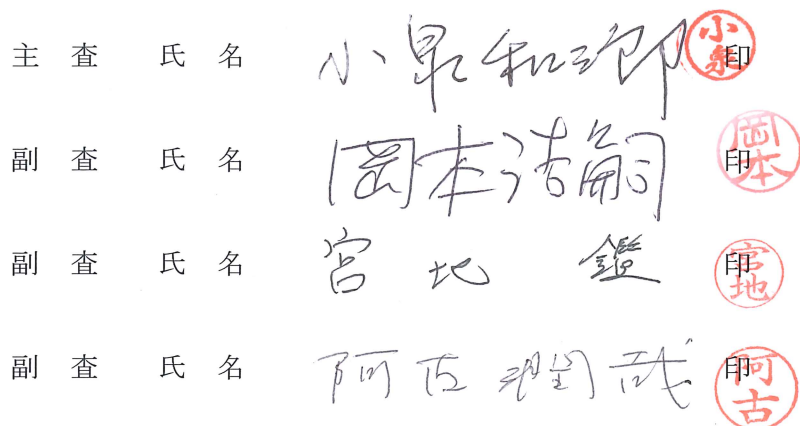 主 査 氏 名 小泉和三郎 印 小泉
副 査 氏 名 岡本浩嗣 印 岡本
副 査 氏 名 宮地 鑑 印 宮地
副 査 氏 名 阿古潤哉 印 阿古